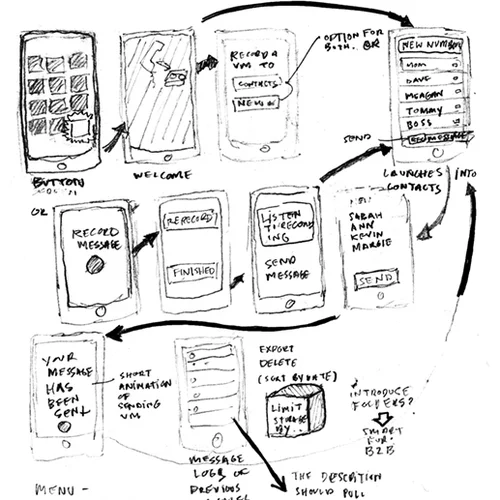 RECORD A
VM TO
CONTACTS
NEW #
OPTION FOR
BOTH. OR
NEW NUMBER
MOM
DAVE
MEAGAN
TOMMY
BOSS
SEND
BUTTON
WELCOME
LAUNCHES
CONTACTS
INTO
OR
RECORD
MESSAGE
RERECORD
FINISHED
LISTEN
TO RECORD
ING
SEND
MESSAGE
SARAH
ANN
KEVIN
MARGIE
SEND
YOUR
MESSAGE
HAS
BEEN
SENT
SHORT
ANIMATION
OF
SENDING
VM
EXPORT
DELETE
(SORT BY DATE)
LIMIT
STORAGE
BY
INTRODUCE
FOLDERS?
SMART
FOR
B2B
MESSAGE
LOGS OF
PREVIOUS
MENU -
THE
SHOULD PULL